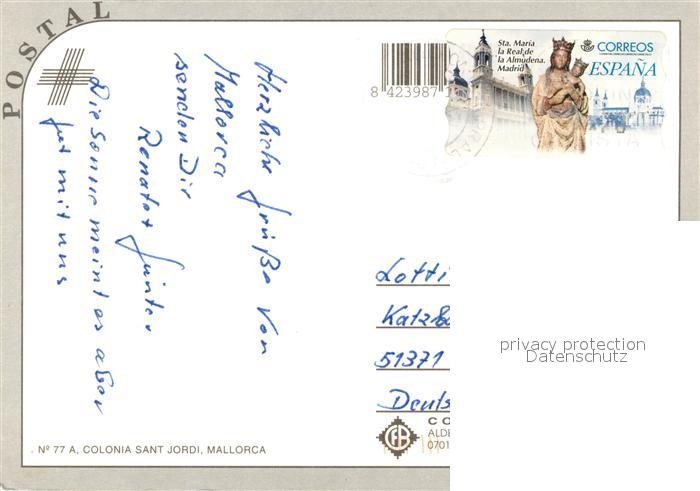 POSTAL
Herzliche Grüße von
Mallorca
senden Dir
Renate + Günter
Die Sonne meint es aber
gut mit uns
8 423987
Sta. María
la Real de
la Almudena.
Madrid
CORREOS
ESPAÑA
Lotti
Katzb
51371
Deuts
CO
ALDE
0701
Nº 77 A, COLONIA SANT JORDI, MALLORCA
privacy protection
Datenschutz